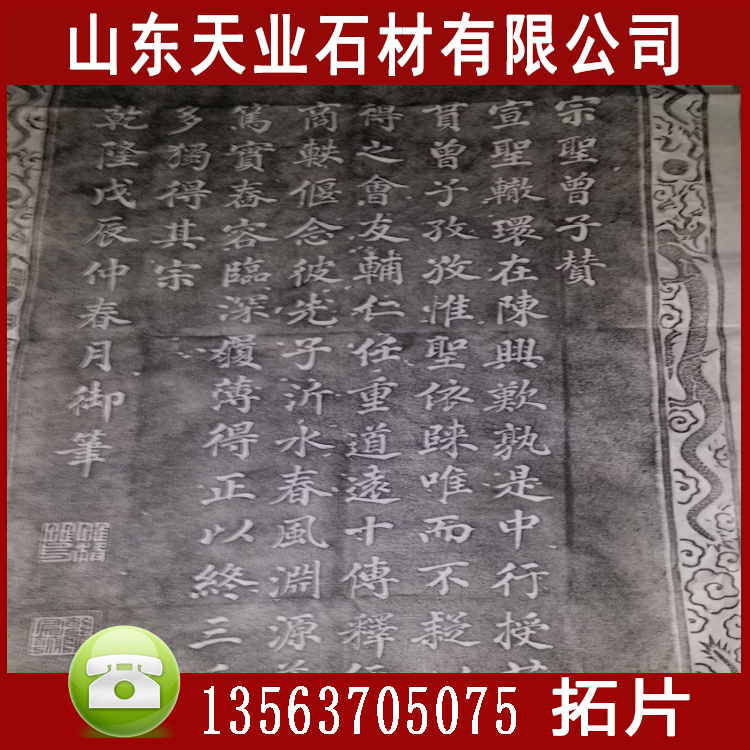 山东天业石材有限公司
宗聖曾子賛
宣聖轍環在陳興歎孰是中行授
貫曾子孜孜惟聖依唯而不以
得之會友輔仁任重道遠十傳釋
商軼偃念彼先子沂水春風淵源
篤實舂容臨深履薄得正以終三
多獨得其宗
乾隆戊辰仲春月御筆
13563705075 拓片